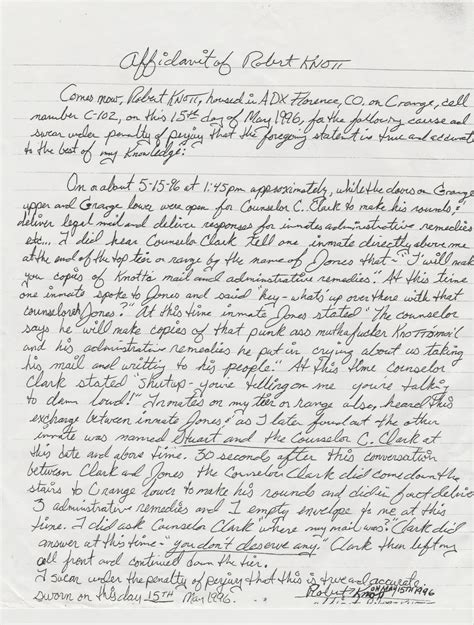 Affidavit of Robert Knott
Comes now, Robert Knott, housed in ADX Florence, CO. on C range, cell
number C-102, on this 15th day of May 1996, for the following cause and
swear under penalty of perjury that the foregoing statement is true and accurate
to the best of my knowledge:
On or about 5-15-96 at 1:45pm approximately, while the doors on C range
upper and C range lower were open for Counselor C. Clark to make his rounds
deliver legal mail and deliver responses for inmates administrative remedies
etc... I did hear Counselor Clark tell one inmate directly above me
at the end of the top tier or range by the name of Jones that - "I will make
you copies of Knotts mail and administrative remedies." At this time
one inmate spoke to Jones and said "hey - whats up over there with that
counselor Jones? At this time inmate Jones stated "The counselor
says he will make copies of that punk ass muthafucker Knotts mail
and his administrative remedies he put in crying about us taking
his mail and writting to his people." At this time counselor
Clark stated "Shutup - you're telling on me you're talking
to damn loud!" Inmates on my tier or range also, heard this
exchange between inmate Jones & as I later found out the other
inmate was named Stuart and the Counselor C. Clark at
this date and above time. 30 seconds after this conversation
between Clark and Jones the Counselor Clark did come down the
stairs to C range lower to make his rounds and did in fact deliver
3 administrative remedies and 1 empty envelope to me at this
time. I did ask Counselor Clark "where my mail was?" Clark did
answer at this time - "you don't deserve any." Clark then left my
cell front and continued down the tier.
I swear under the penalty of perjury that this is true and accurate.
sworn on this day 15th May 1996. Robert Knott ON MAY 15TH 1996